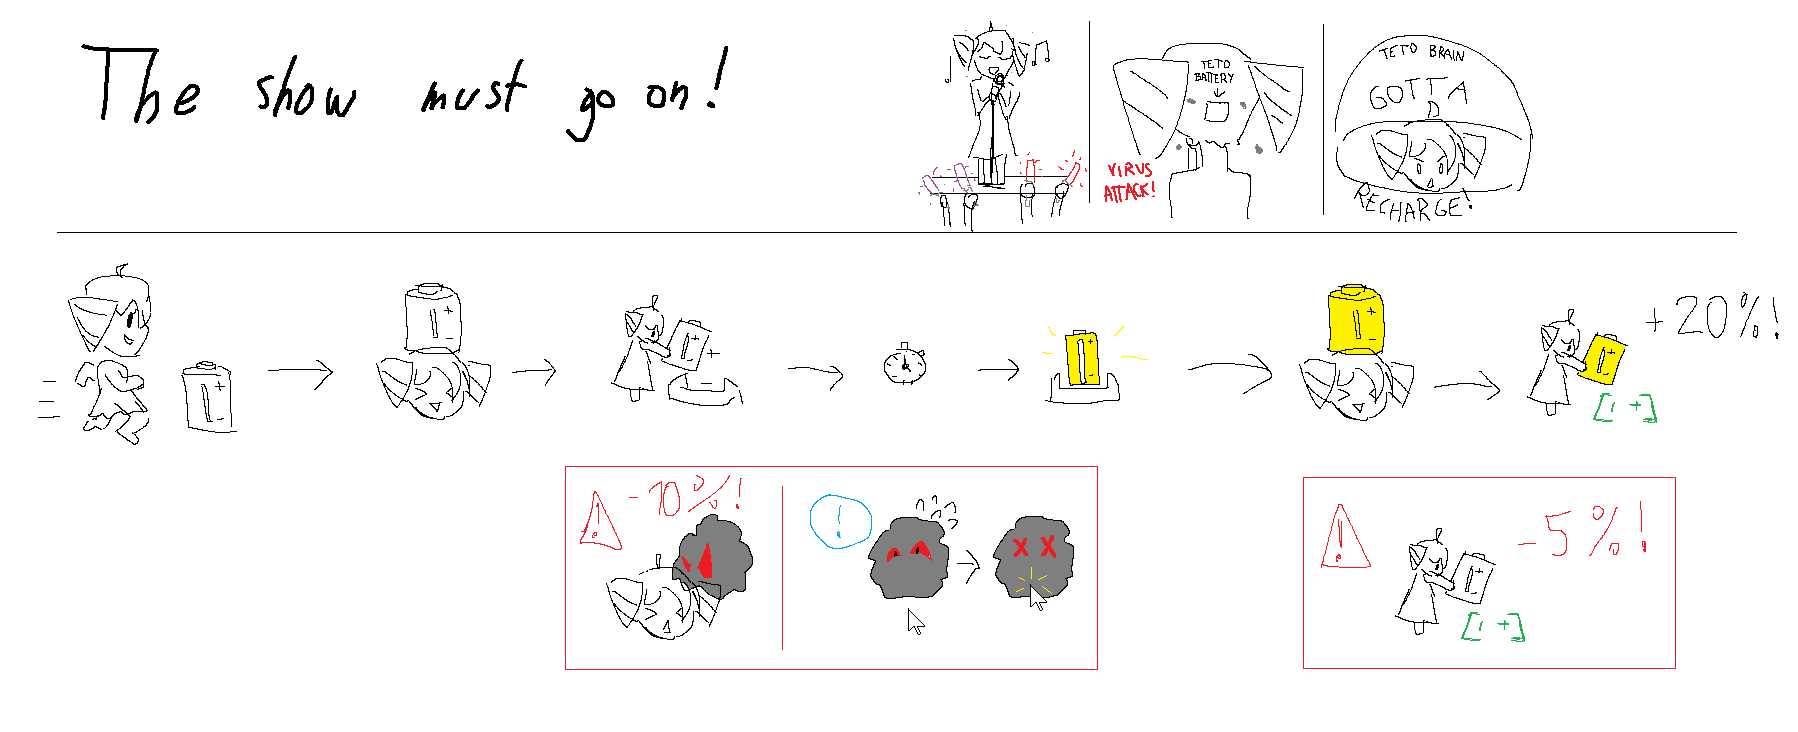 The show must go on!
TETO
BATTERY
VIRUS
ATTACK!
TETO BRAIN
GOTTA
RECHARGE!
+
-
+
+
-
+
-
+
-
+20%!
+
-
[- +]
! -10%!
!
! -5%!
+
-
[- +]